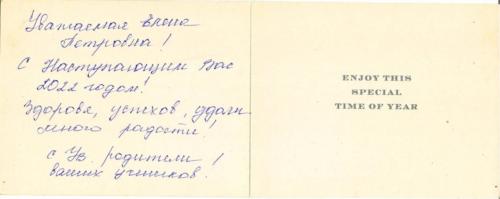 Уважаемая Елена
Петровна!
С Наступающим Вас
2022 годом!
Здоровя, успехов, удачи
много радости!
с Ув. родители
ваших учеников.
ENJOY THIS
SPECIAL
TIME OF YEAR